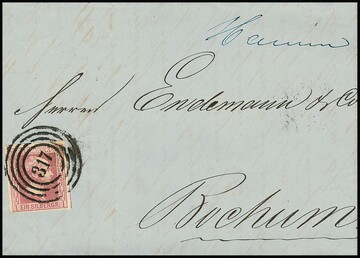 Hamm
Herren Endemann & Co
317
1 EIN SILBERGR. 1
Bochum